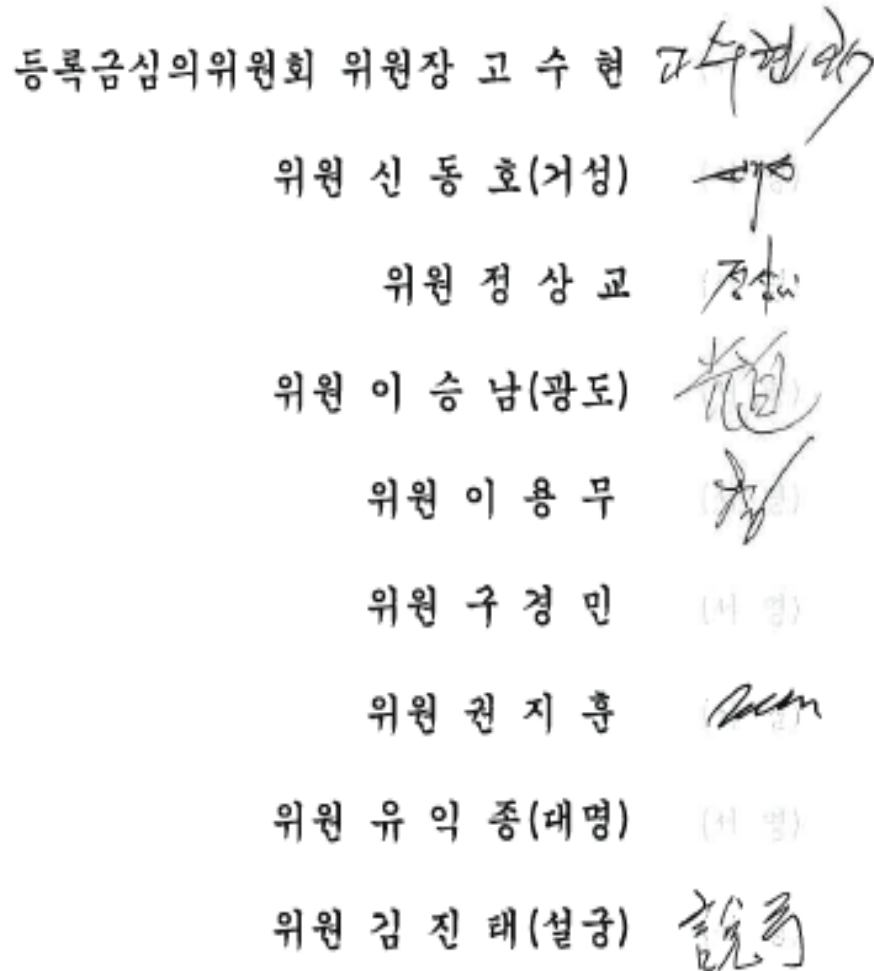 등록금심의위원회 위원장 고 수 현 고수현
위원 신 동 호(거성)
위원 정 상 교 정상교
위원 이 승 남(광도) 光道
위원 이 용 무
위원 구 경 민 (서 명)
위원 권 지 훈
위원 유 익 종(대명) (서 명)
위원 김 진 태(설궁)